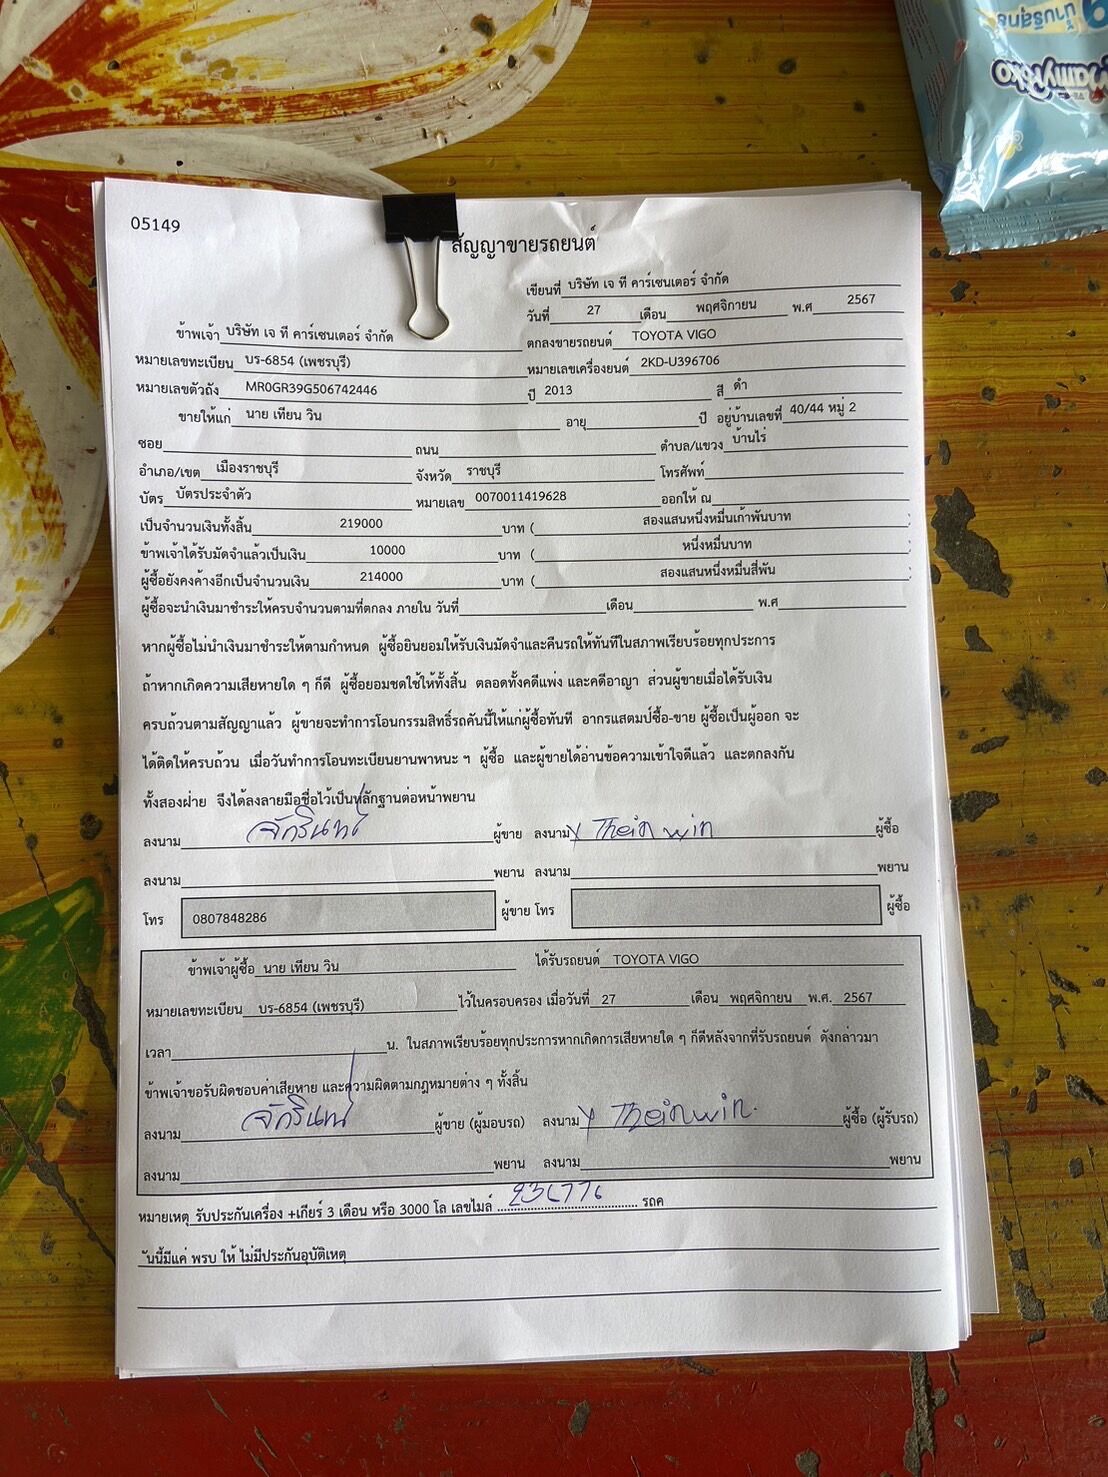 05149
สัญญาขายรถยนต์
เขียนที่ บริษัท เจ ที คาร์เซนเตอร์ จำกัด
วันที่ 27 เดือน พฤศจิกายน พ.ศ 2567
ข้าพเจ้า บริษัท เจ ที คาร์เซนเตอร์ จำกัด ตกลงขายรถยนต์ TOYOTA VIGO
หมายเลขทะเบียน บร-6854 (เพชรบุรี) หมายเลขเครื่องยนต์ 2KD-U396706
หมายเลขตัวถัง MR0GR39G506742446 ปี 2013 สี ดำ
ขายให้แก่ นาย เทียน วิน อายุ ปี อยู่บ้านเลขที่ 40/44 หมู่ 2
ซอย ถนน ตำบล/แขวง บ้านไร่
อำเภอ/เขต เมืองราชบุรี จังหวัด ราชบุรี โทรศัพท์
บัตร บัตรประจำตัว หมายเลข 0070011419628 ออกให้ ณ
เป็นจำนวนเงินทั้งสิ้น 219000 บาท ( สองแสนหนึ่งหมื่นเก้าพันบาท )
ข้าพเจ้าได้รับมัดจำแล้วเป็นเงิน 10000 บาท ( หนึ่งหมื่นบาท )
ผู้ซื้อยังคงค้างอีกเป็นจำนวนเงิน 214000 บาท ( สองแสนหนึ่งหมื่นสี่พัน )
ผู้ซื้อจะนำเงินมาชำระให้ครบจำนวนตามที่ตกลง ภายใน วันที่ เดือน พ.ศ
หากผู้ซื้อไม่นำเงินมาชำระให้ตามกำหนด ผู้ซื้อยินยอมให้รับเงินมัดจำและคืนรถให้ทันทีในสภาพเรียบร้อยทุกประการ
ถ้าหากเกิดความเสียหายใด ๆ ก็ดี ผู้ซื้อยอมชดใช้ให้ทั้งสิ้น ตลอดทั้งคดีแพ่ง และคดีอาญา ส่วนผู้ขายเมื่อได้รับเงิน
ครบถ้วนตามสัญญาแล้ว ผู้ขายจะทำการโอนกรรมสิทธิ์รถคันนี้ให้แก่ผู้ซื้อทันที อากรแสตมป์ซื้อ-ขาย ผู้ซื้อเป็นผู้ออก จะ
ได้ติดให้ครบถ้วน เมื่อวันทำการโอนทะเบียนยานพาหนะ ฯ ผู้ซื้อ และผู้ขายได้อ่านข้อความเข้าใจดีแล้ว และตกลงกัน
ทั้งสองฝ่าย จึงได้ลงลายมือชื่อไว้เป็นหลักฐานต่อหน้าพยาน
ลงนาม จักรินทร์ ผู้ขาย ลงนาม x Thein win ผู้ซื้อ
ลงนาม พยาน ลงนาม พยาน
โทร 0807848286 ผู้ขาย โทร ผู้ซื้อ
ข้าพเจ้าผู้ซื้อ นาย เทียน วิน ได้รับรถยนต์ TOYOTA VIGO
หมายเลขทะเบียน บร-6854 (เพชรบุรี) ไว้ในครอบครอง เมื่อวันที่ 27 เดือน พฤศจิกายน พ.ศ. 2567
เวลา น. ในสภาพเรียบร้อยทุกประการหากเกิดการเสียหายใด ๆ ก็ดีหลังจากที่รับรถยนต์ ดังกล่าวมา
ข้าพเจ้าขอรับผิดชอบค่าเสียหาย และความผิดตามกฎหมายต่าง ๆ ทั้งสิ้น
ลงนาม จักรินทร์ ผู้ขาย (ผู้มอบรถ) ลงนาม x Thein win. ผู้ซื้อ (ผู้รับรถ)
ลงนาม พยาน ลงนาม พยาน
หมายเหตุ รับประกันเครื่อง +เกียร์ 3 เดือน หรือ 3000 โล เลขไมล์ ........ รถค
ันนี้มีแค่ พรบ ให้ ไม่มีประกันอุบัติเหตุ
MamyPoko